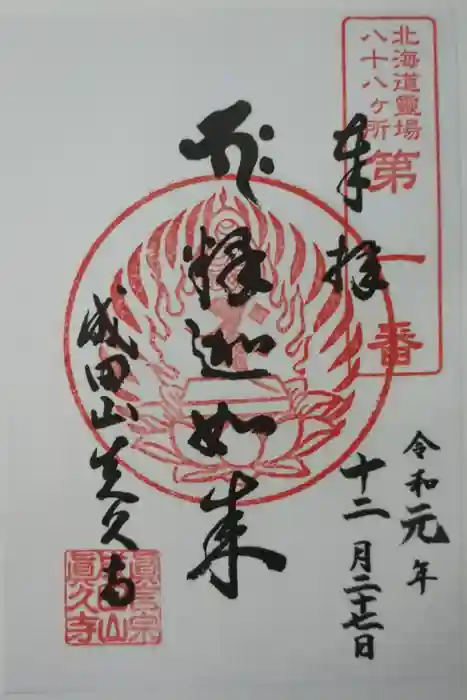 北海道靈場
八十八ヶ所
第一番
奉拝
令和元年
十二月二十七日
釋迦如来
成田山真久寺
真言宗
成田山
眞久寺